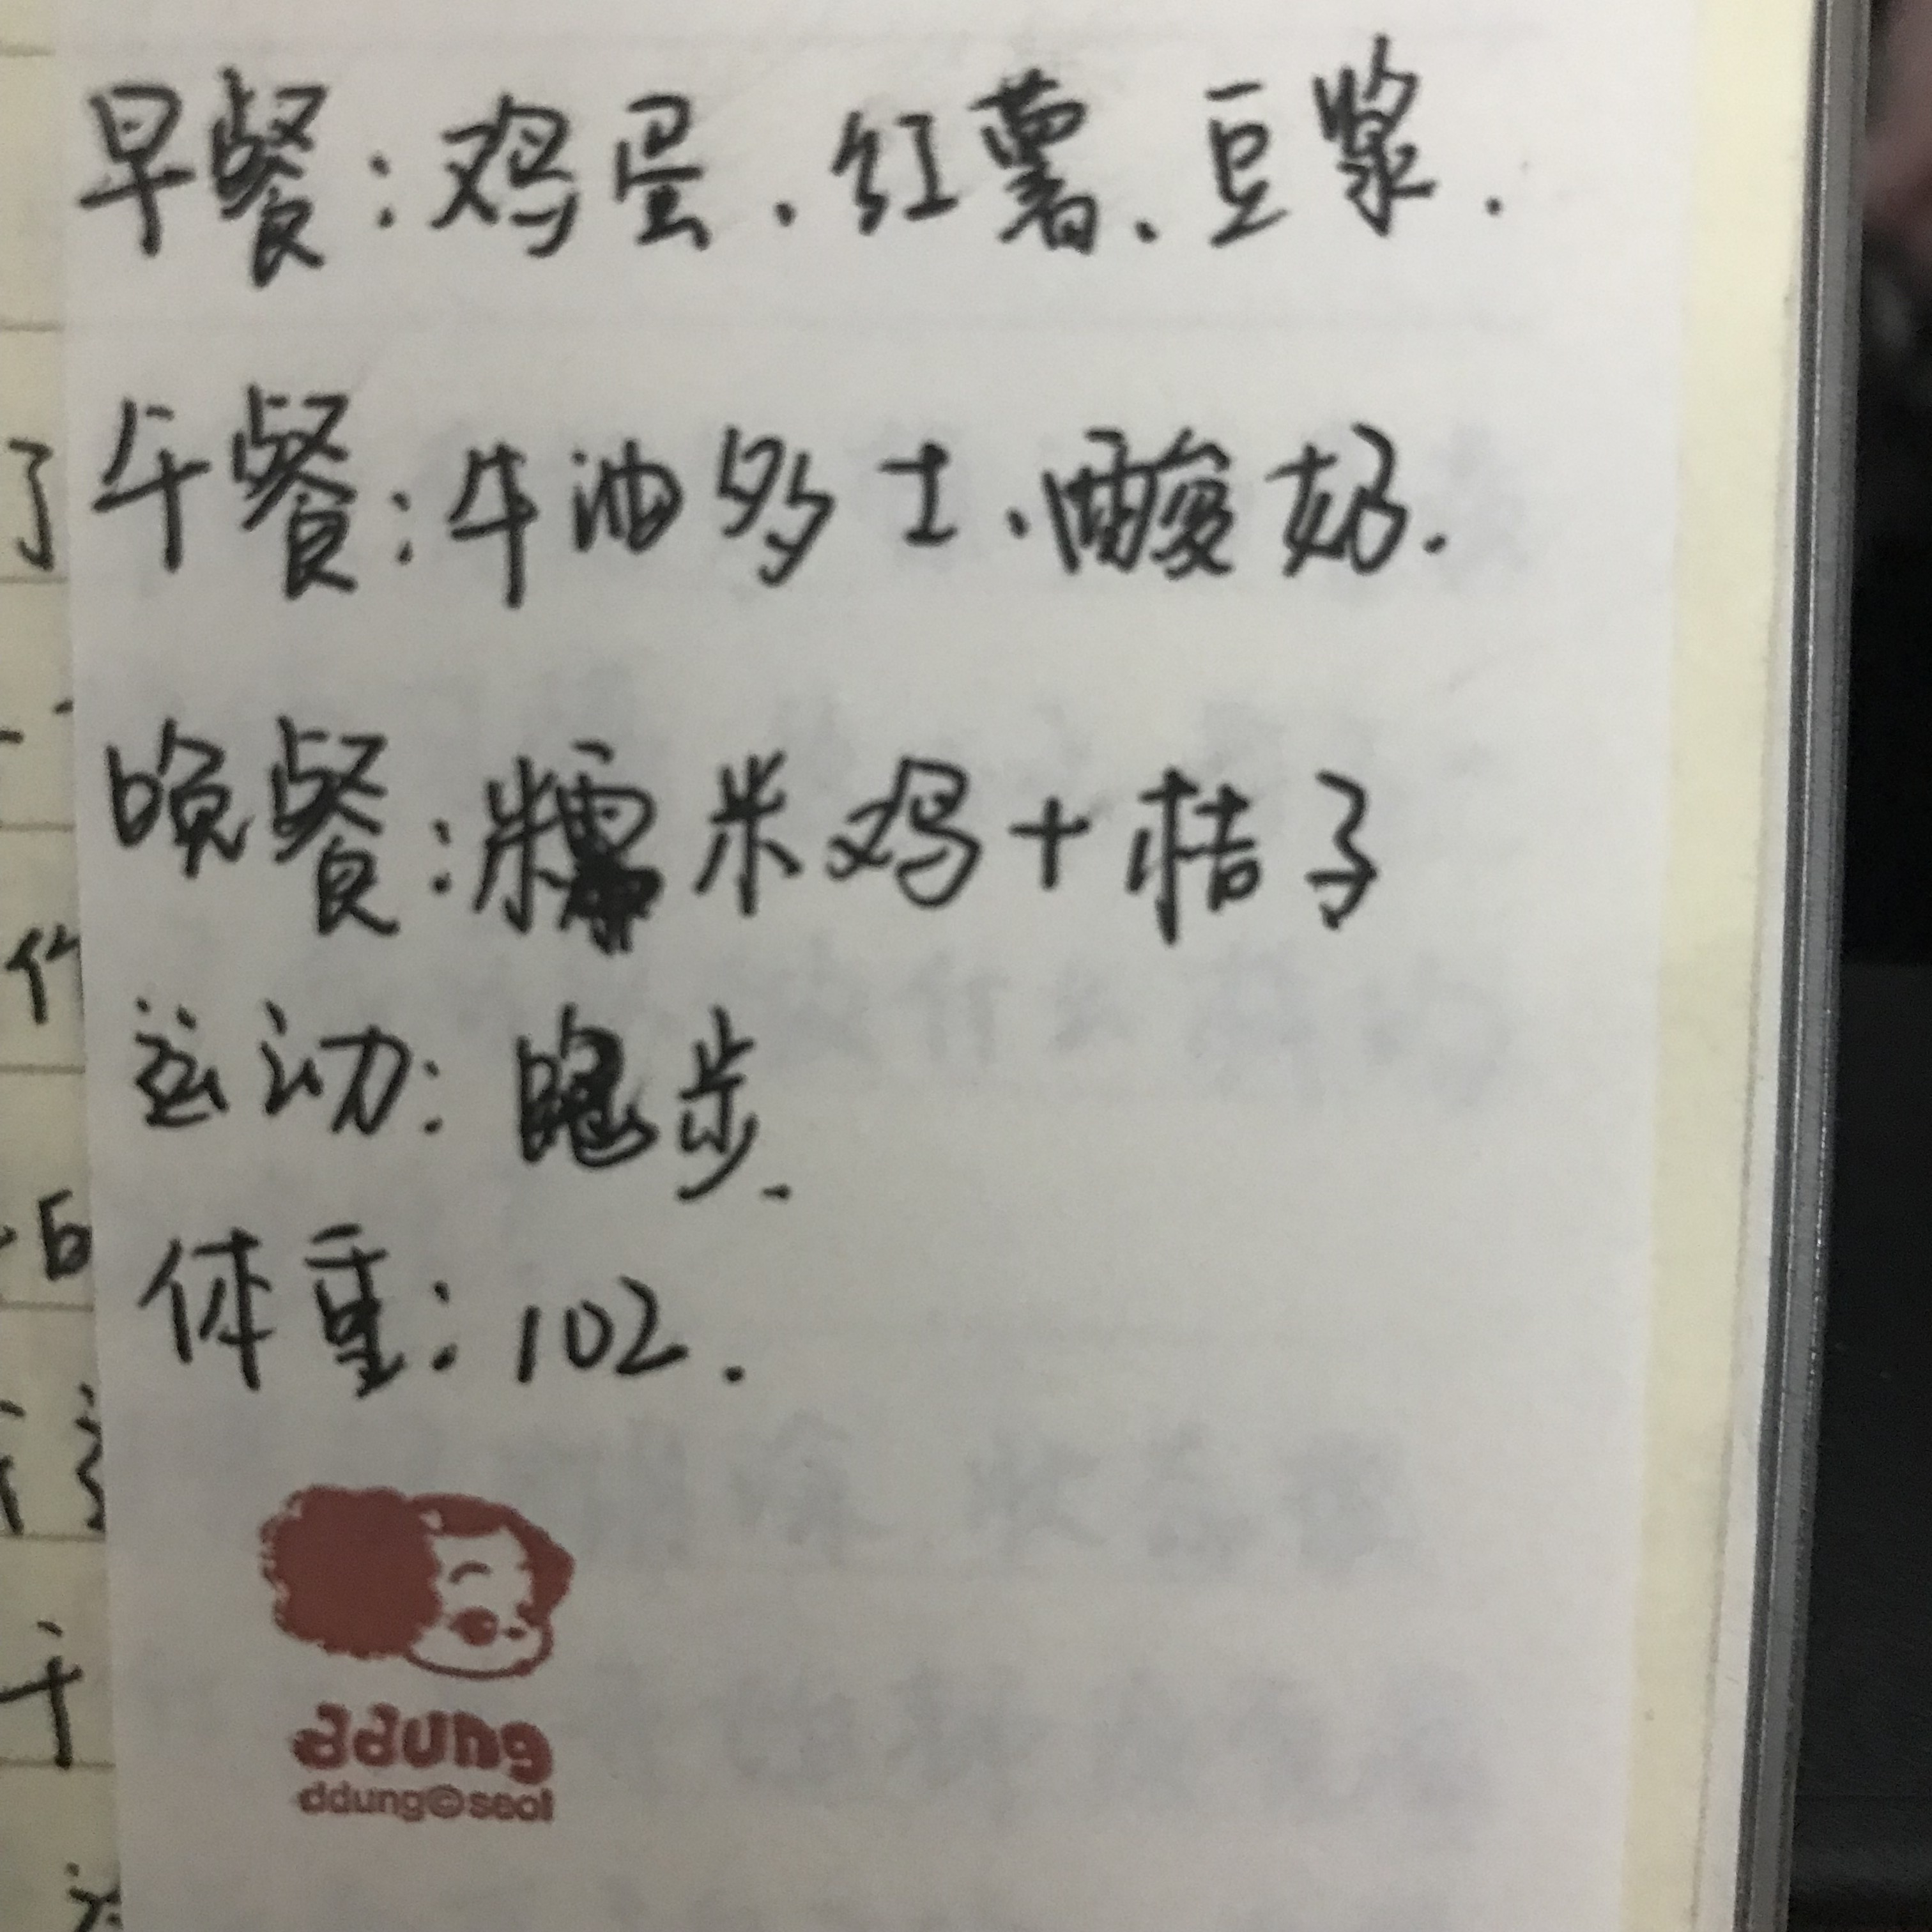 早餐：鸡蛋、红薯、豆浆.
午餐：牛油多士、酸奶.
晚餐：糯米鸡+桔子
运动：跑步.
体重：102.
ddung
ddung©seol